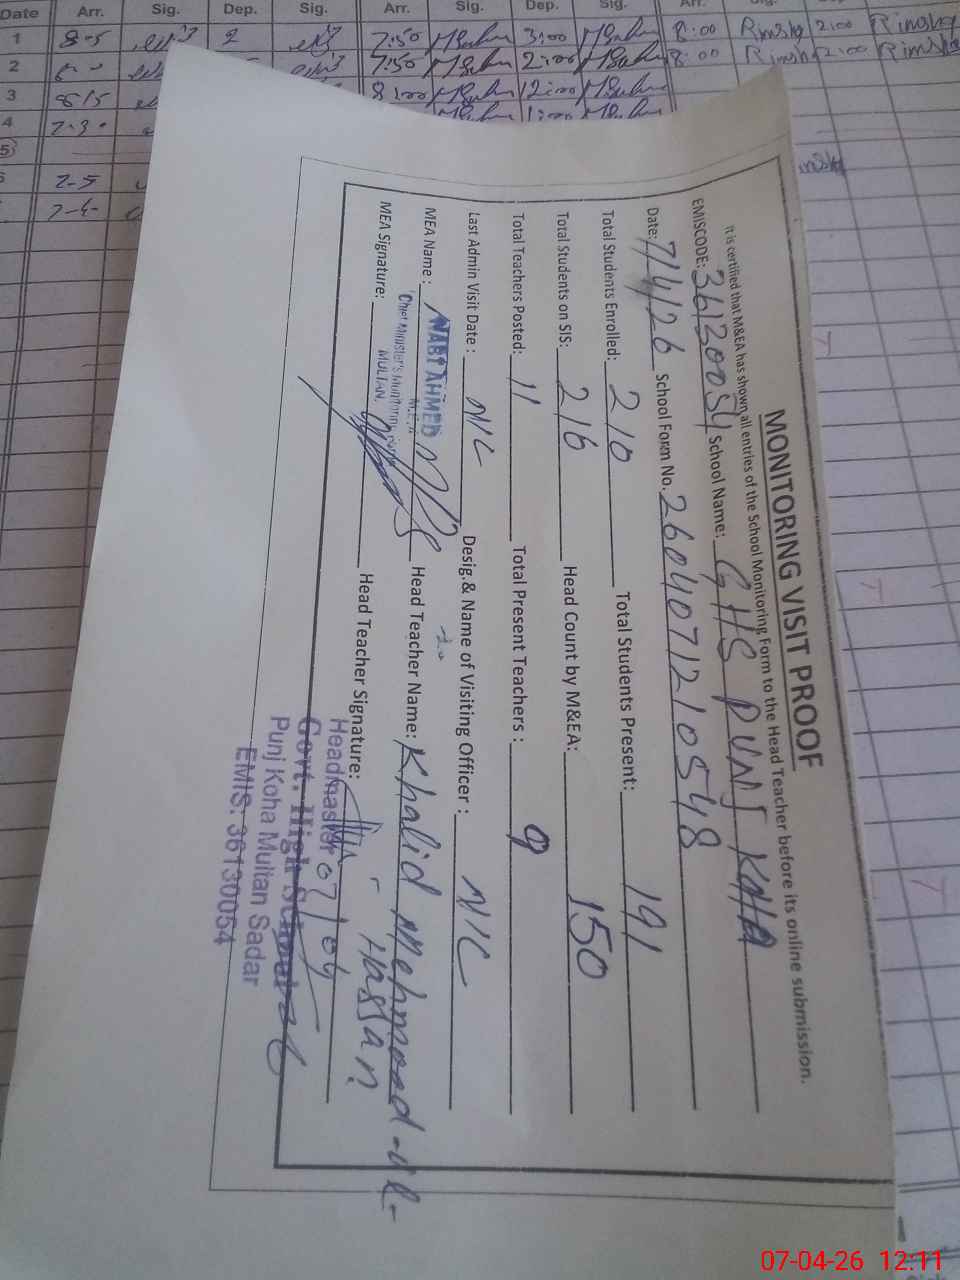 Date Arr. Sig. Dep. Sig. Arr. Sig. Dep. Sig. Arr.
1 8-5 2 7:50 3:00 8:00 Rimsha 2:00 Rimsha
2 7:50 2:00 8:00 Rimsha 2:00 Rimsha
3 8/5 8:00 12:00
4 7-30 1:00
5
7-5
7-4-
MONITORING VISIT PROOF
It is certified that M&EA has shown all entries of the School Monitoring Form to the Head Teacher before its online submission.
EMISCODE: 36130054 School Name: GHS PUNJ KOHA
Date: 7/4/26 School Form No. 260407121054 8
Total Students Enrolled: 210 Total Students Present: 191
Total Students on SIS: 216 Head Count by M&EA: 150
Total Teachers Posted: 11 Total Present Teachers : 9
Last Admin Visit Date : NIL Desig.& Name of Visiting Officer : NIL
MEA Name : NABI AHMED Head Teacher Name: Khalid Mehmood-ul-Hassan
M.E.A
Chief Minister's Monitoring
MULTAN.
MEA Signature: Head Teacher Signature:
07/04
Headmaster
Govt. High School
Punj Koha Multan Sadar
EMIS: 36130054
07-04-26 12:11